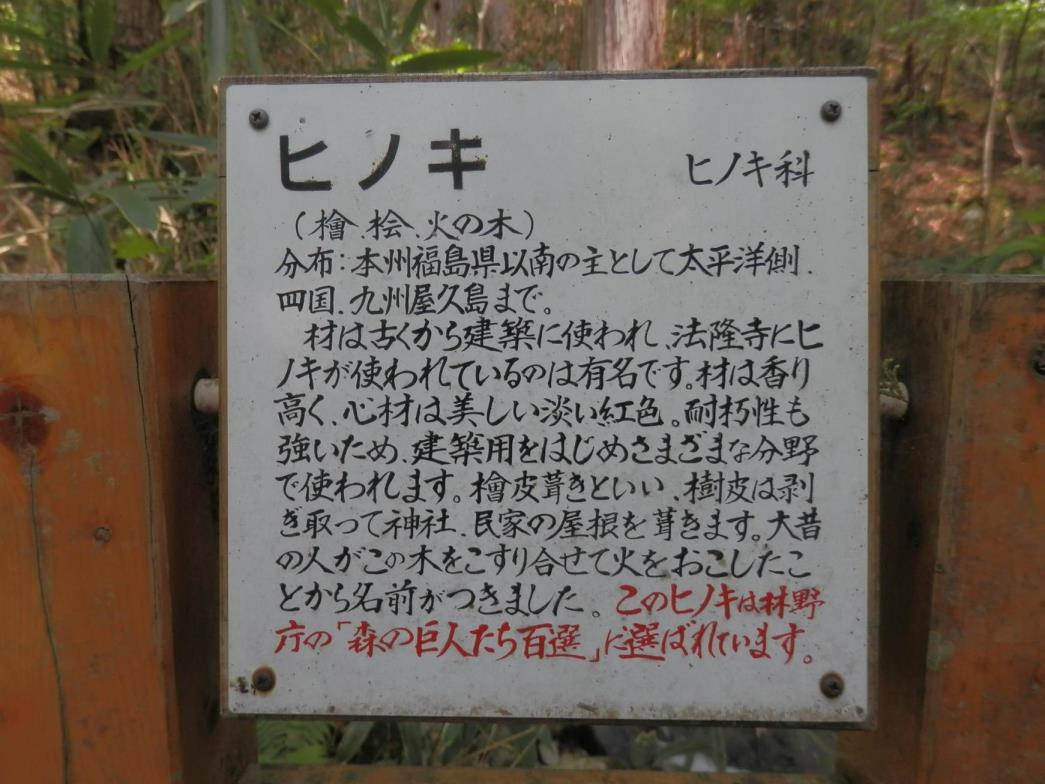 ヒノキ ヒノキ科
(檜、桧、火の木)
分布:本州福島県以南の主として太平洋側、
四国、九州屋久島まで。
材は古くから建築に使われ、法隆寺にヒ
ノキが使われているのは有名です。材は香り
高く、心材は美しい淡い紅色。耐朽性も
強いため、建築用をはじめさまざまな分野
で使われます。檜皮葺きといい、樹皮は剥
ぎ取って神社、民家の屋根を葺きます。大昔
の人がこの木をこすり合せて火をおこしたこ
とから名前がつきました。このヒノキは林野
庁の「森の巨人たち百選」に選ばれています。